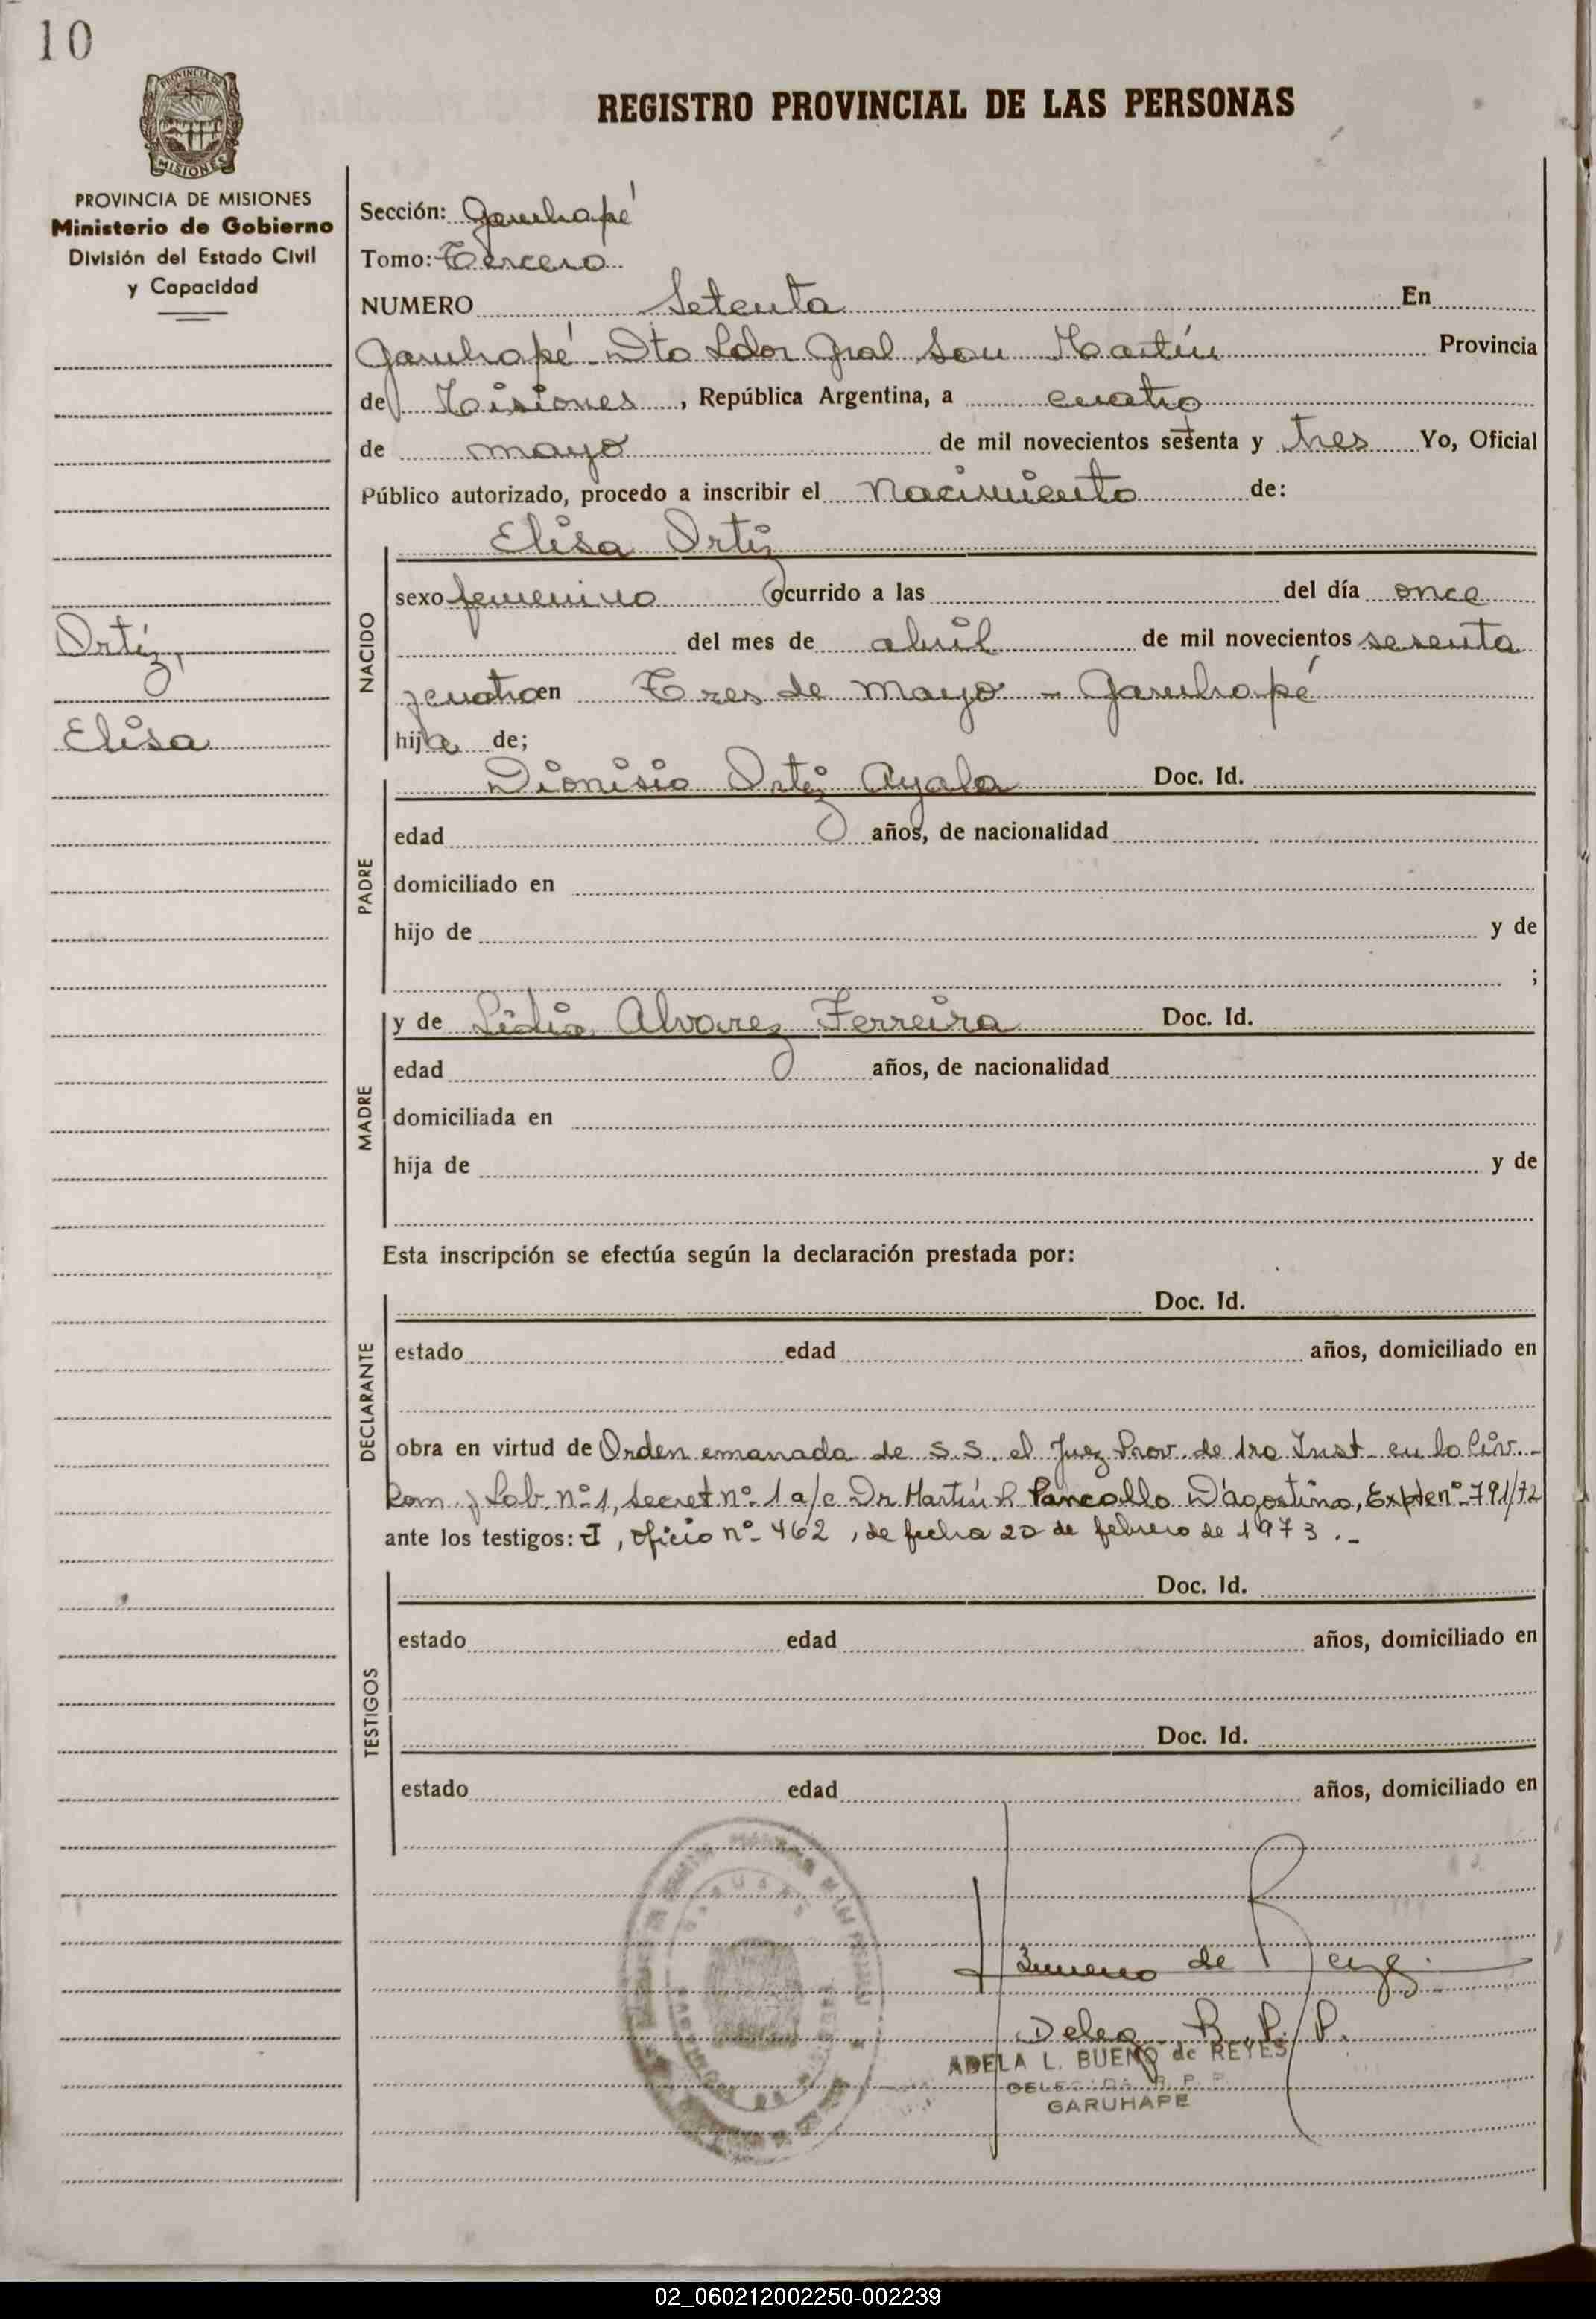 10
PROVINCIA DE
MISIONES
REGISTRO PROVINCIAL DE LAS PERSONAS
PROVINCIA DE MISIONES
Ministerio de Gobierno
División del Estado Civil
y Capacidad
Sección: Garuhapé
Tomo: Tercero
NUMERO Setenta En
Garuhapé - Dto Ldor Gral San Martín Provincia
de Misiones, República Argentina, a cuatro
de mayo de mil novecientos setenta y tres Yo, Oficial
Público autorizado, procedo a inscribir el Nacimiento de:
Elisa Ortiz
NACIDO
sexo femenino ocurrido a las del día once
del mes de abril de mil novecientos sesenta
y cuatro en Tres de Mayo - Garuhapé
hija de;
Ortiz,
Elisa
PADRE
Dionisio Ortiz Ayala Doc. Id.
edad años, de nacionalidad
domiciliado en
hijo de y de
;
MADRE
y de Lidia Alvarez Ferreira Doc. Id.
edad años, de nacionalidad
domiciliada en
hija de y de
Esta inscripción se efectúa según la declaración prestada por:
DECLARANTE
Doc. Id.
estado edad años, domiciliado en
obra en virtud de Orden emanada de S.S. el Juez Prov. de 1ra Inst. en lo Civ.-
Com. y Lab. nº 1, Secret nº 1 a/c Dr Martín R Pancallo D'agostino, Expte nº 791/72
ante los testigos: , Oficio nº 462, de fecha 20 de febrero de 1973.-
TESTIGOS
Doc. Id.
estado edad años, domiciliado en
Doc. Id.
estado edad años, domiciliado en
Bueno de Reyes
Deleg. R. P. P.
ADELA L. BUENO de REYES
DELEGADA R. P. P.
GARUHAPE
02_060212002250-002239